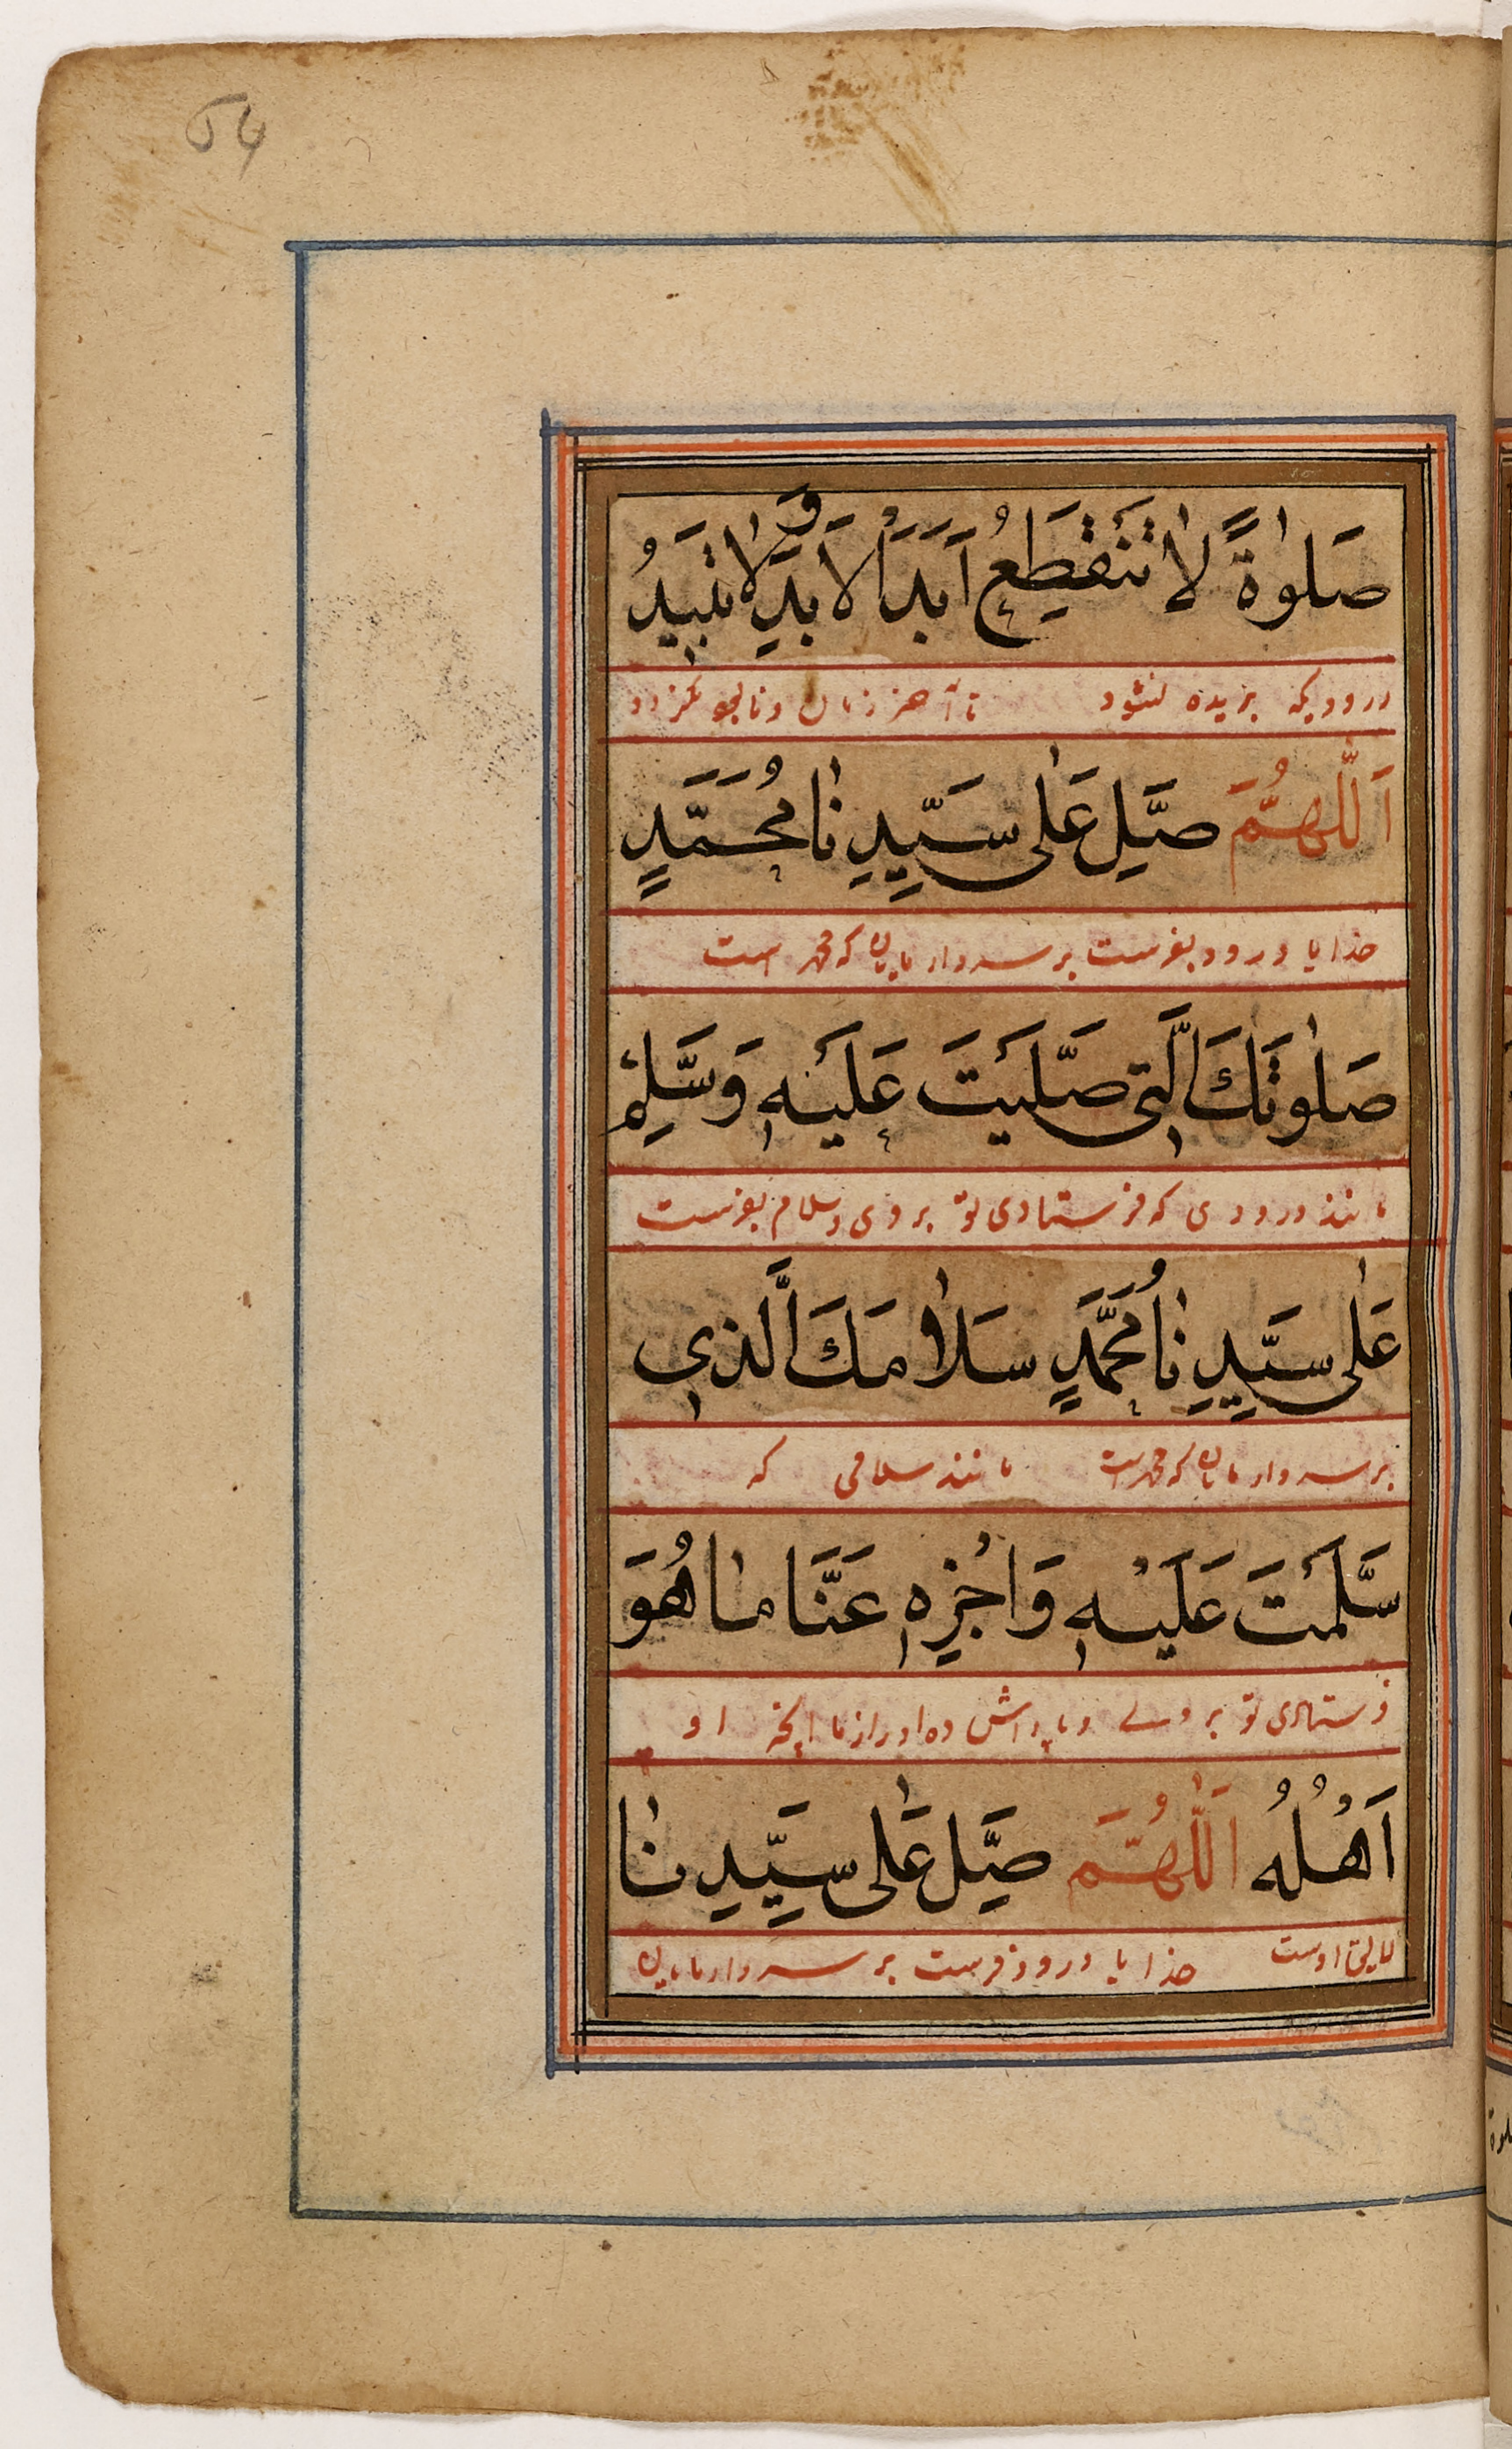 صَلٰوةً لَا تَنْقَطِعُ اَبَدَ الْاَبَدِ وَلَا تَبِيْدُ
درودیکه بریده نشود تا آخر زمان و نابجو نگردد
اَللّٰهُمَّ صَلِّ عَلٰى سَيِّدِنَا مُحَمَّدٍ
خدایا درود بفرست بر سردار مایان که محمد است
صَلٰوتَكَ الَّتِى صَلَّيْتَ عَلَيْهِ وَسَلِّمْ
مانند درودی که فرستادی تو بر وی و سلام بفرست
عَلٰى سَيِّدِنَا مُحَمَّدٍ سَلَامَكَ الَّذِى
بر سردار مایان که محمد است مانند سلامی که
سَلَّمْتَ عَلَيْهِ وَاجْزِهِ عَنَّا مَا هُوَ
فرستادی تو بر وے و پاداش ده او را از ما آنچه او
اَهْلُهُ اَللّٰهُمَّ صَلِّ عَلٰى سَيِّدِنَا
لایق اوست خدایا درود فرست بر سردار مایان